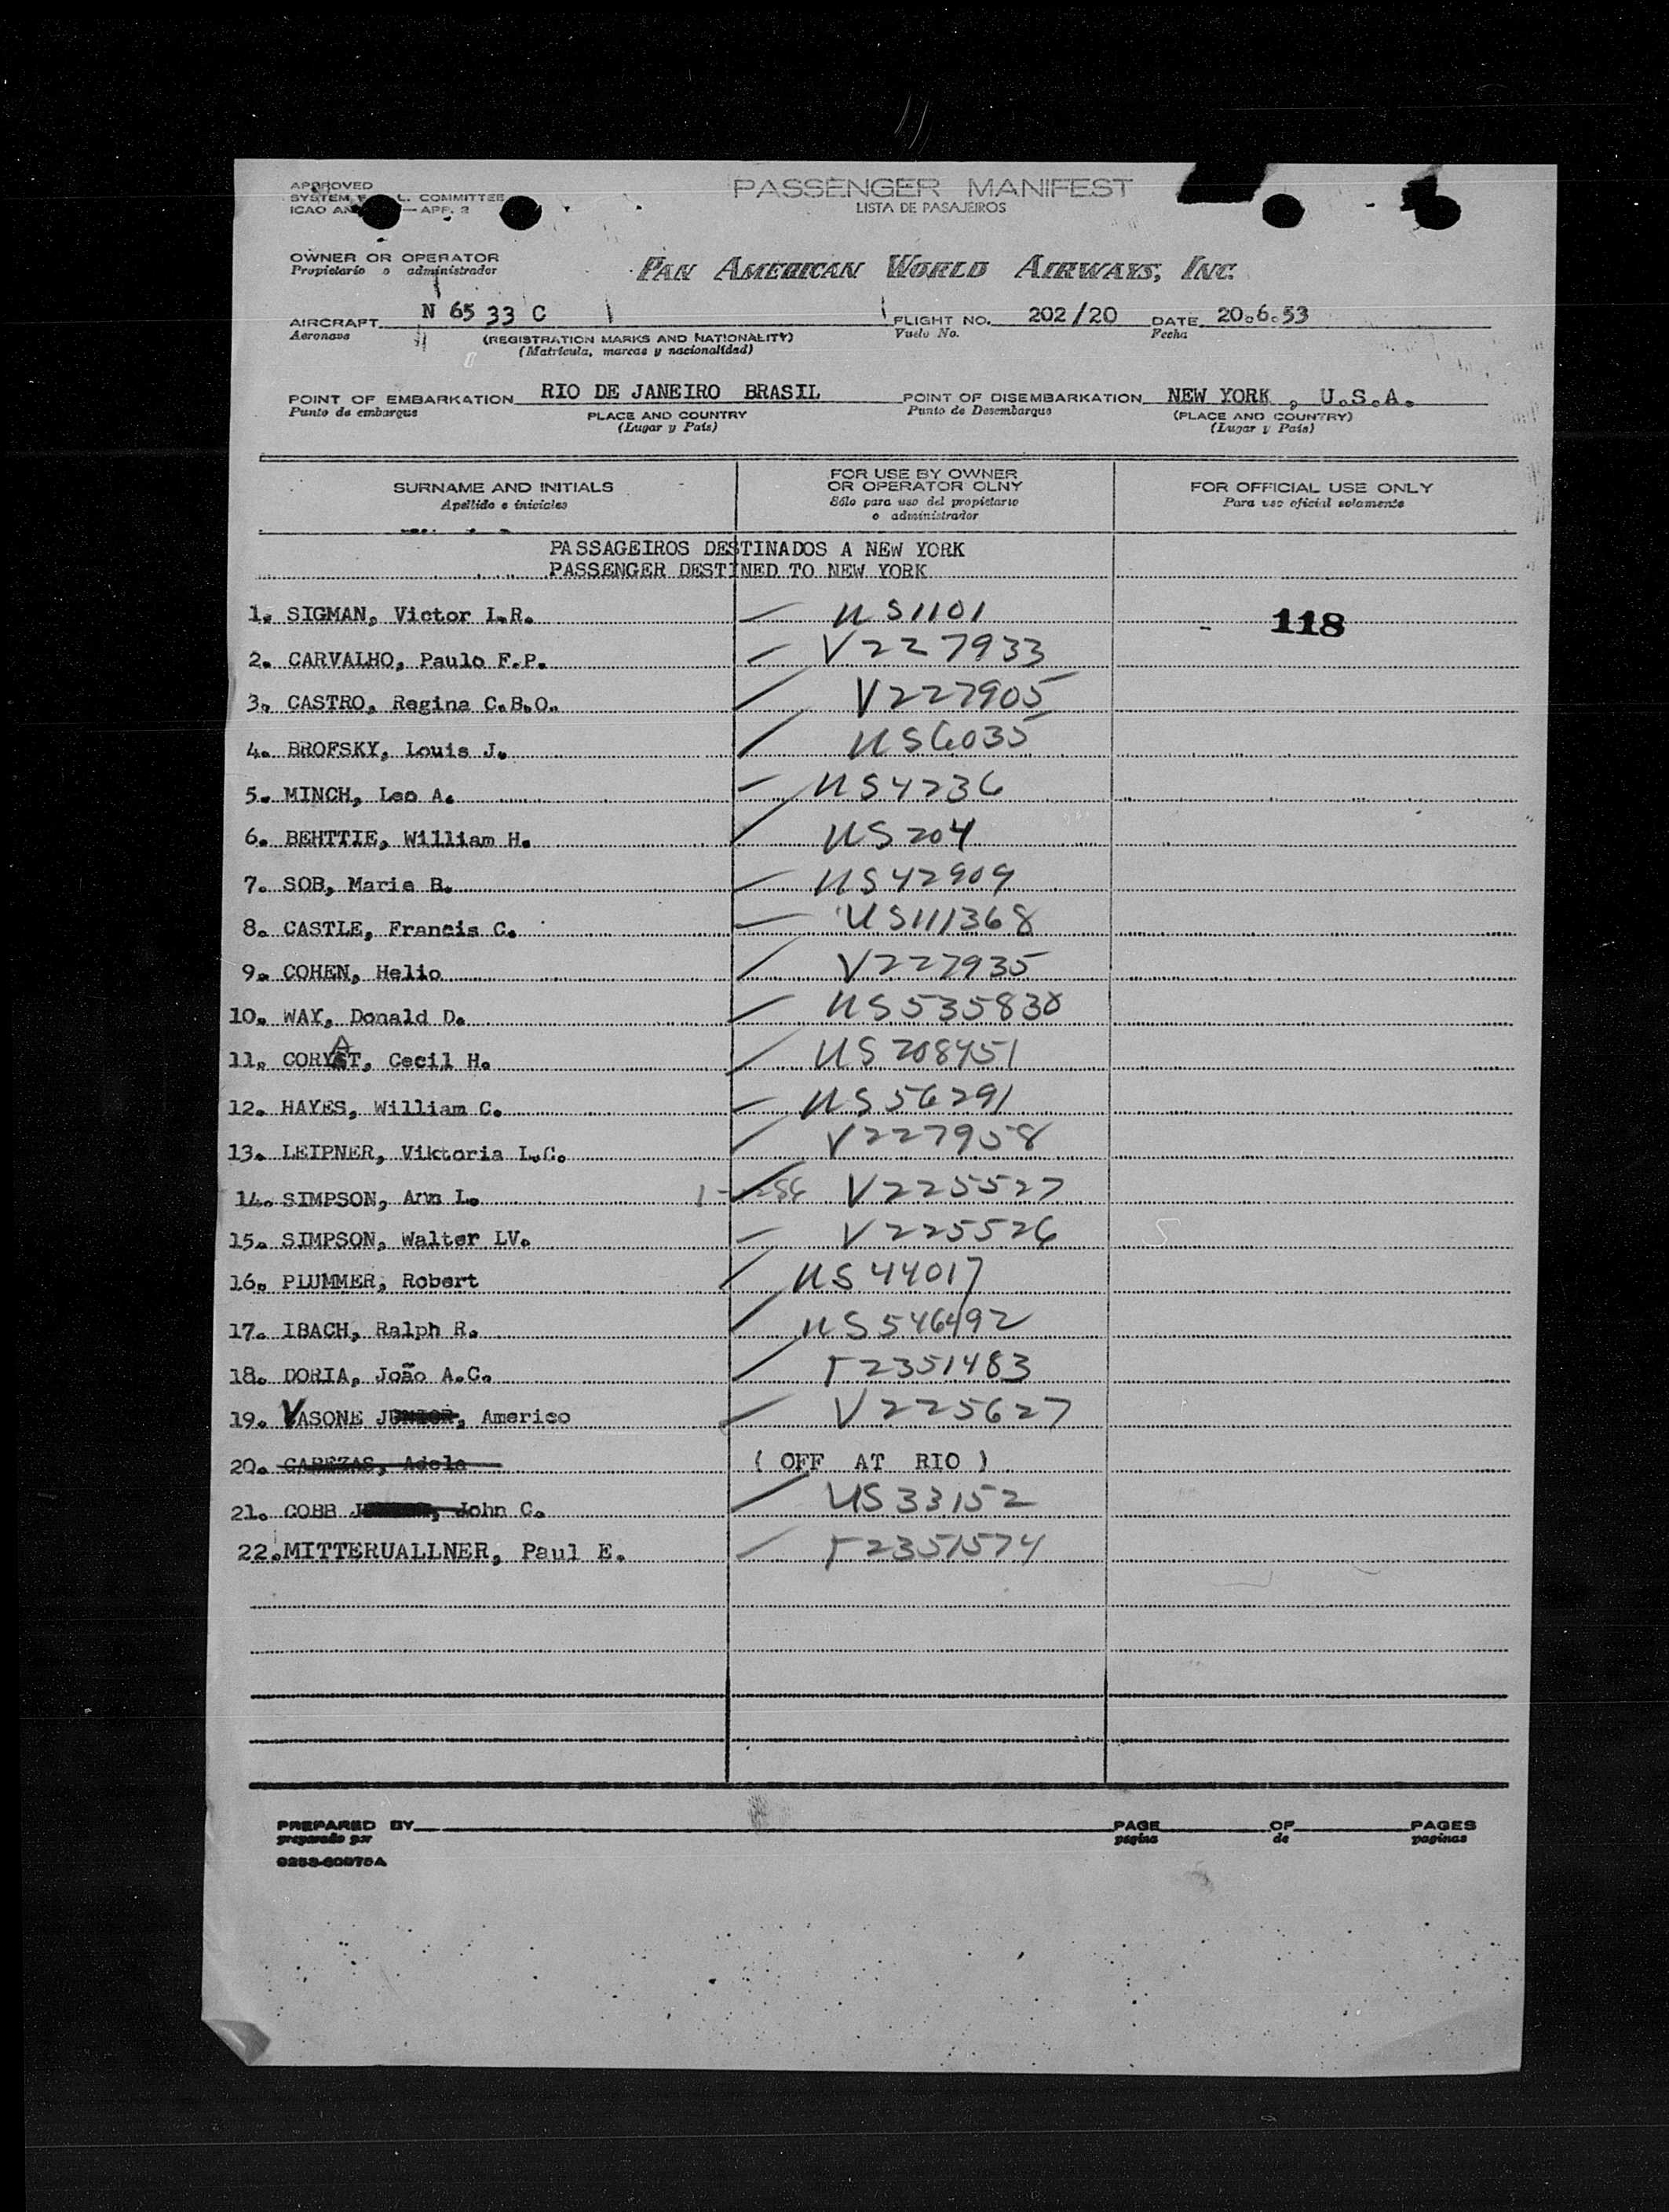 APPROVED
PASSENGER MANIFEST
SYSTEM L. COMMITTEE
LISTA DE PASAJEROS
ICAO — APP. 2
OWNER OR OPERATOR
Propietario o administrador
PAN AMERICAN WORLD AIRWAYS, INC.
AIRCRAFT N 6533 C FLIGHT NO. 202/20 DATE 20.6.53
Aeronave (REGISTRATION MARKS AND NATIONALITY) Vuelo No. Fecha
(Matrícula, marcas y nacionalidad)
POINT OF EMBARKATION RIO DE JANEIRO BRASIL POINT OF DISEMBARKATION NEW YORK , U.S.A.
Punto de embarque PLACE AND COUNTRY Punto de Desembarque (PLACE AND COUNTRY)
(Lugar y País) (Lugar y País)
SURNAME AND INITIALS
Apellido e iniciales
FOR USE BY OWNER
OR OPERATOR OLNY
Sólo para uso del propietario
o administrador
FOR OFFICIAL USE ONLY
Para uso oficial solamente
PASSAGEIROS DESTINADOS A NEW YORK
PASSENGER DESTINED TO NEW YORK
1. SIGMAN, Victor L.R. US1101 - 118
2. CARVALHO, Paulo F.P. V227933
3. CASTRO, Regina C.B.O. V227905
4. BROFSKY, Louis J. US6035
5. MINCH, Leo A. US4236
6. BEHTTIE, William H. US204
7. SOB, Marie B. US42909
8. CASTLE, Francis C. US111368
9. COHEN, Helio V227935
10. WAY, Donald D. US535838
11. CORYAT, Cecil H. US208451
12. HAYES, William C. US56291
13. LEIPNER, Viktoria L.C. V227958
14. SIMPSON, Ann L. V225527
15. SIMPSON, Walter LV. V225526
16. PLUMMER, Robert US44017
17. IBACH, Ralph R. US546492
18. DORIA, João A.C. T2351483
19. VASONE JUNIOR, Americo V225627
20. CABEZAS, Adela ( OFF AT RIO )
21. COBB J, John C. US33152
22. MITTERUALLNER, Paul E. T2351574
PREPARED BY PAGE OF PAGES
preparado por pagina de paginas